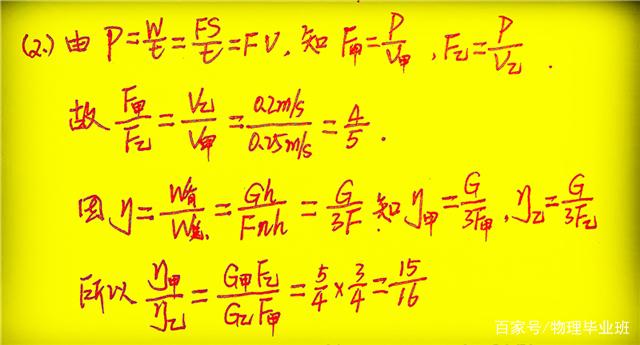 (2.) 由 P=W/t=FS/t=FV, 知 F甲=P/V甲, F乙=P/V乙.
故 F甲/F乙=V乙/V甲=0.2m/s/0.25m/s=4/5.
因 η=W有/W总=Gh/Fnh=G/3F. 知 η甲=G/3F甲, η乙=G/3F乙
所以 η甲/η乙=G甲F乙/G乙F甲=5/4×3/4=15/16
百家号/物理毕业班